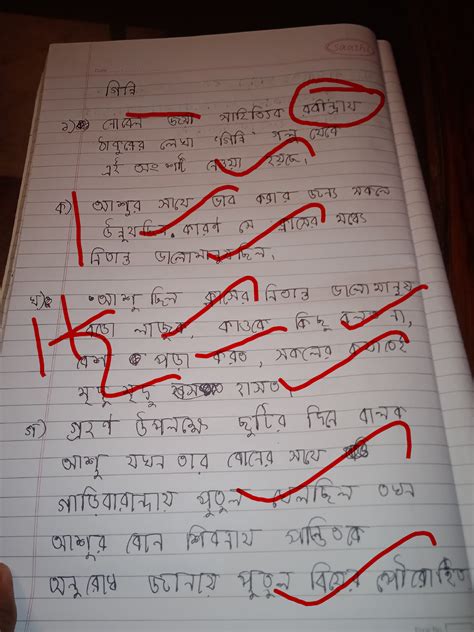 saathi
গিন্নি
১) নোবেল জয়ী সাহিত্যিক রবীন্দ্রনাথ
ঠাকুরের লেখা 'গিন্নি' গল্প থেকে
এই অংশটি নেওয়া হয়েছে।
ক) আশুর সাথে ভাব করার জন্য সকলে
উন্মুখ ছিল. কারণ সে ক্লাসের মধ্যে
নিতান্ত ভালোমানুষ ছিল,
খ) আশু ছিল ক্লাসের নিতান্ত ভালোমানুষ
বড়ো লাজুক, কাওকে কিছু বলত না,
বেশ পড়া করত, সকলের কথাতেই
মৃদু মৃদু হাসত,
গ) গ্রহণ উপলক্ষে ছুটির দিনে বালক
আশু যখন তার বোনের সাথে
গাড়িবারান্দায় পুতুল খেলছিল তখন
আশুর বোন শিবনাথ পণ্ডিতকে
অনুরোধ জানায় পুতুল বিয়ের পৌরোহিত